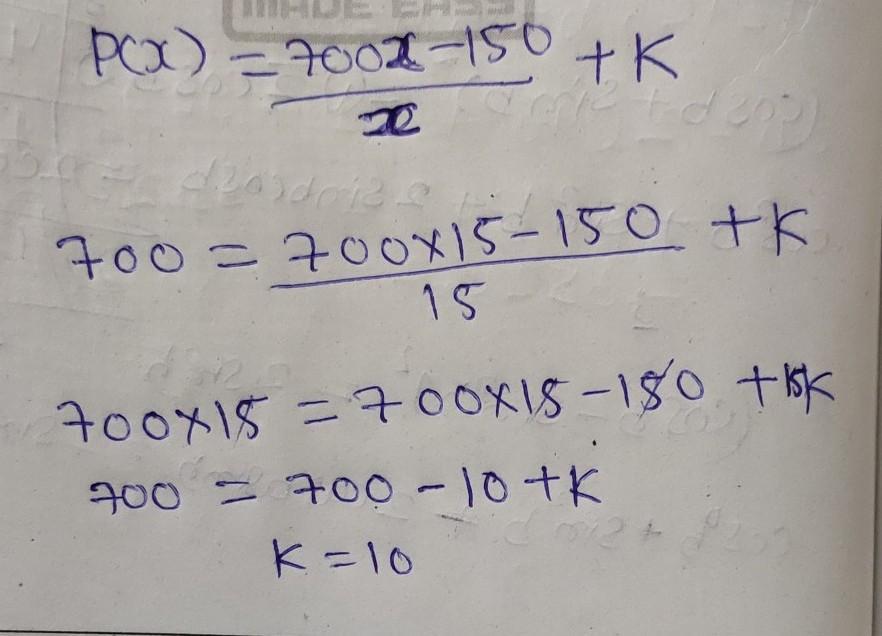 MADE EASY
P(x) = 700x-150 + K
x
700 = 700×15-150 + K
15
700×15 = 700×15-150 +15K
700 = 700-10+K
K=10